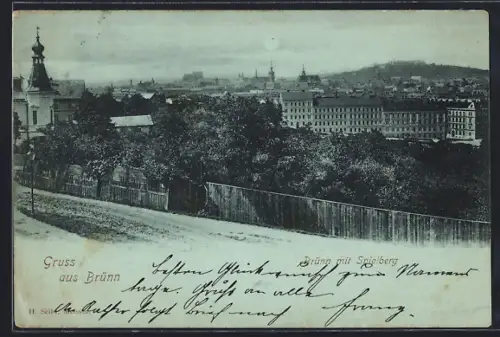 Gruss
aus Brünn
Brünn mit Spielberg
besten Glückwunsch zum Namens
tage. Gruß an alle
folgt Brief nach Franz